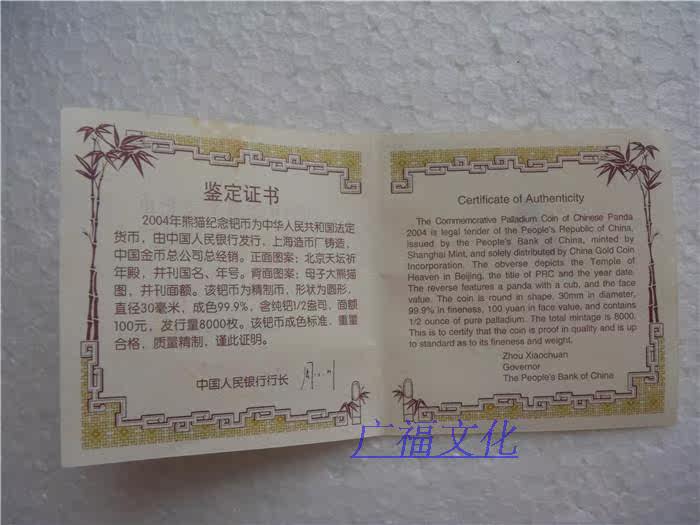 鉴定证书
2004年熊猫纪念钯币为中华人民共和国法定
货币，由中国人民银行发行，上海造币厂铸造，
中国金币总公司总经销。正面图案：北京天坛祈
年殿，并刊国名、年号。背面图案：母子大熊猫
图，并刊面额。该钯币为精制币，形状为圆形，
直径30毫米，成色99.9%，含纯钯1/2盎司，面额
100元，发行量8000枚。该钯币成色标准，重量
合格，质量精制，谨此证明。
中国人民银行行长
Certificate of Authenticity
The Commemorative Palladium Coin of Chinese Panda
2004 is legal tender of the People's Republic of China,
issued by the People's Bank of China, minted by
Shanghai Mint, and solely distributed by China Gold Coin
Incorporation. The obverse depicts the Temple of
Heaven in Beijing, the title of PRC and the year date.
The reverse features a panda with a cub, and the face
value. The coin is round in shape, 30mm in diameter,
99.9% in fineness, 100 yuan in face value, and contains
1/2 ounce of pure palladium. The total mintage is 8000.
This is to certify that the coin is proof in quality and is up
to standard as to its fineness and weight.
Zhou Xiaochuan
Governor
The People's Bank of China
广福文化